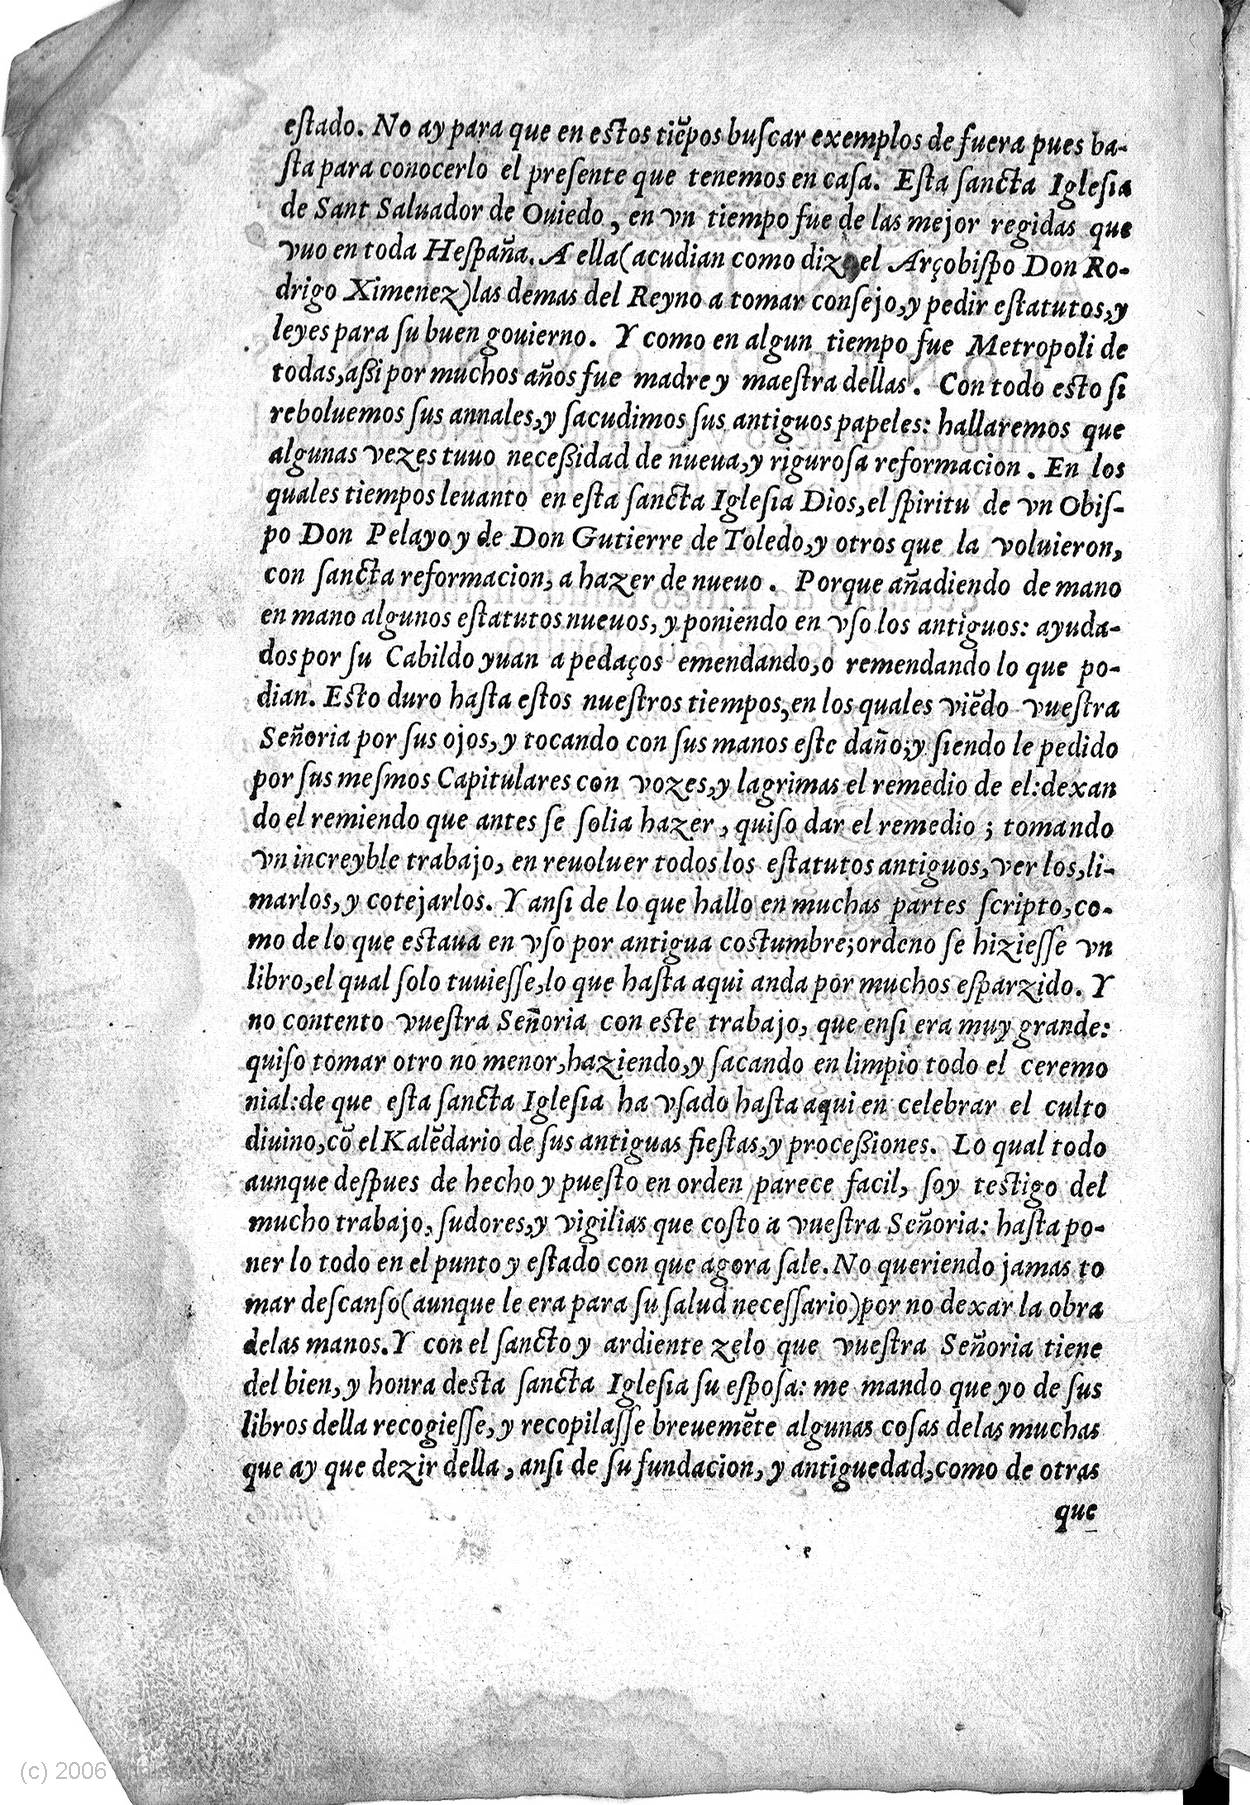 estado. No ay para que en estos tiẽpos buſcar exemplos de fuera pues ba-
ſta para conocerlo el preſente que tenemos en caſa. Esta ſancta Igleſia
de Sant Saluador de Ouiedo, en vn tiempo fue de las mejor regidas que
vuo en toda Heſpaña. A ella (acudian como dize el Arçobiſpo Don Ro-
drigo Ximenez) las demas del Reyno a tomar conſejo, y pedir eſtatutos, y
leyes para ſu buen gouierno. Y como en algun tiempo fue Metropoli de
todas, aßi por muchos años fue madre y maeſtra dellas. Con todo esto ſi
reboluemos ſus annales, y ſacudimos ſus antiguos papeles: hallaremos que
algunas vezes tuuo neceßidad de nueua, y riguroſa reformacion. En los
quales tiempos leuanto en eſta ſancta Igleſia Dios, el ſpiritu de vn Obiſ-
po Don Pelayo y de Don Gutierre de Toledo, y otros que la voluieron,
con ſancta reformacion, a hazer de nueuo. Porque añadiendo de mano
en mano algunos eſtatutos nueuos, y poniendo en vſo los antiguos: ayuda-
dos por ſu Cabildo yuan a pedaços emendando, o remendando lo que po-
dian. Esto duro haſta eſtos nueſtros tiempos, en los quales viẽdo vueſtra
Señoria por ſus ojos, y tocando con ſus manos eſte daño; y ſiendo le pedido
por ſus meſmos Capitulares con vozes, y lagrimas el remedio de el: dexan
do el remiendo que antes se ſolia hazer, quiſo dar el remedio; tomando
vn increyble trabajo, en reuoluer todos los eſtatutos antiguos, ver los, li-
marlos, y cotejarlos. Y anſi de lo que hallo en muchas partes ſcripto, co-
mo de lo que estaua en vſo por antigua costumbre; ordeno ſe hizieſſe vn
libro, el qual ſolo tuuieſſe, lo que haſta aqui anda por muchos eſparzido. Y
no contento vueſtra Señoria con este trabajo, que enſi era muy grande:
quiſo tomar otro no menor, haziendo, y ſacando en limpio todo el ceremo
nial: de que eſta ſancta Igleſia ha vſado haſta aqui en celebrar el culto
diuino, cõ el Kalẽdario de ſus antiguas fieſtas, y proceßiones. Lo qual todo
aunque deſpues de hecho y pueſto en orden parece facil, ſoy testigo del
mucho trabajo, ſudores, y vigilias que coſto a vueſtra Señoria: haſta po-
ner lo todo en el punto y eſtado con que agora ſale. No queriendo jamas to
mar deſcanſo (aunque le era para ſu ſalud neceſſario) por no dexar la obra
delas manos. Y con el ſancto y ardiente zelo que vueſtra Señoria tiene
del bien, y honra desta ſancta Igleſia ſu eſpoſa: me mando que yo de ſus
libros della recogieſſe, y recopilaſſe breuemẽte algunas coſas delas muchas
que ay que dezir della, anſi de ſu fundacion, y antiguedad, como de otras
que
(c) 2006